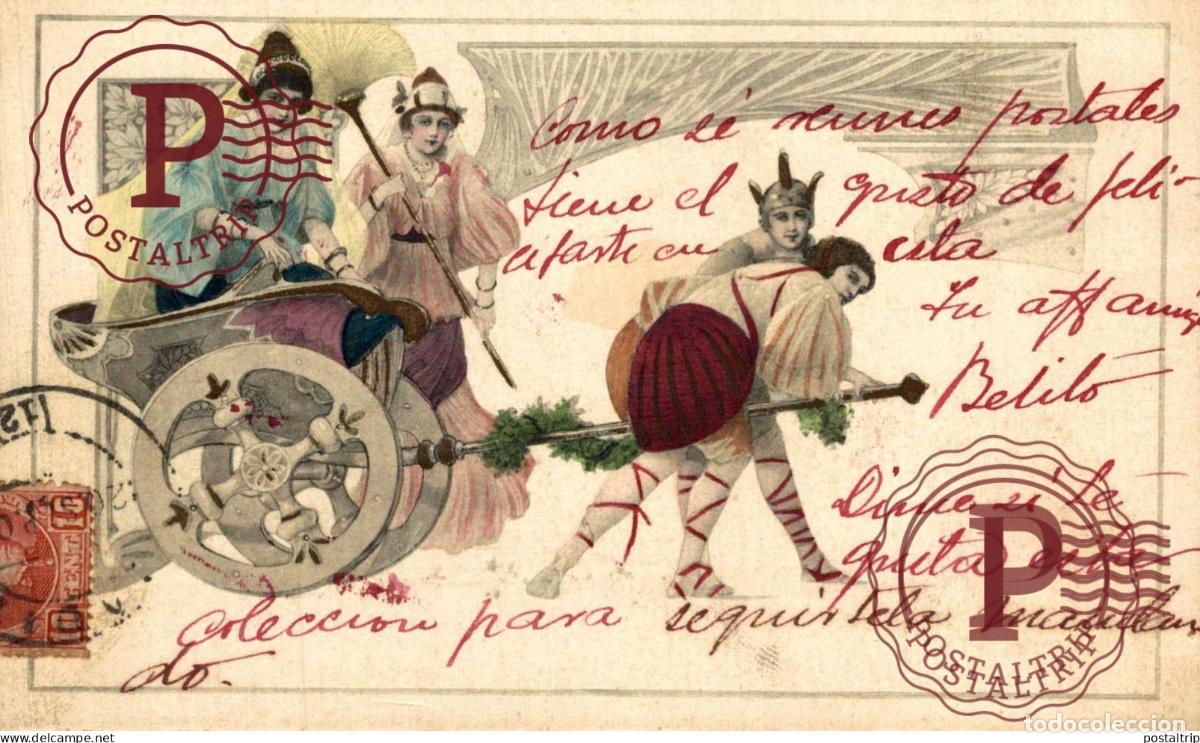 Como sé reunes postales
tiene el gusto de feli-
citarte en esta
Tu affmo
Belito
Dime si te
gusta esta
coleccion para seguirtela mandan
do.
P
POSTALTRIP
P
POSTALTRIP
POSTALTRIP
12
10 CENT 10
todocoleccion
www.delcampe.net
postaltrip